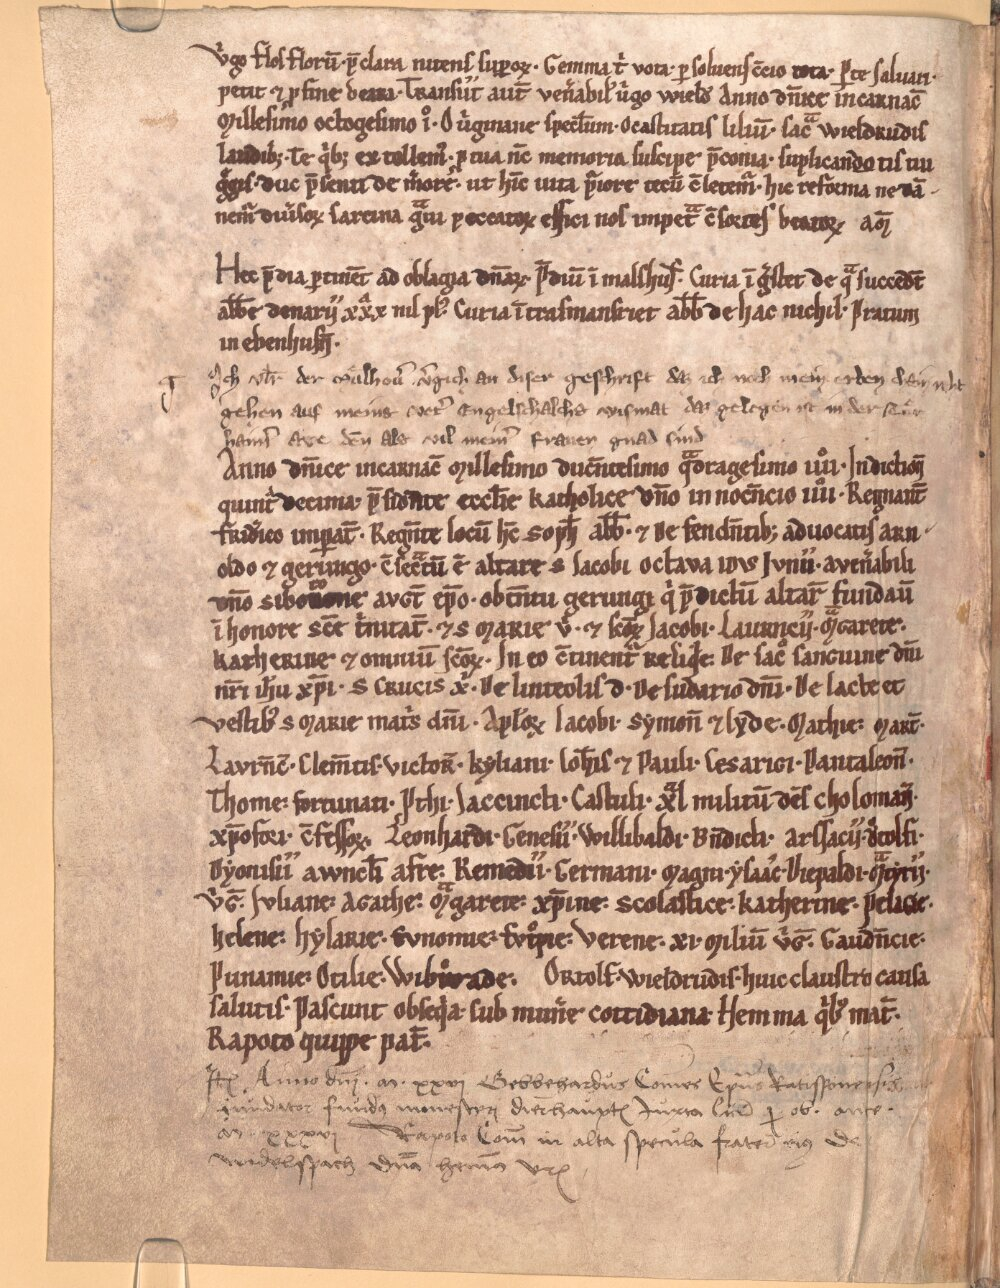 Vgo flos florū· p̄clara nitens sup̄oꝝ· Gemma t̄ vota· p̄soluens c̄cio tota· P̄te saluari·
petit ⁊ p̄ fine beata· Transiit aut̄ ven̄abil᾽ ṽgo wield᾽ Anno dn̄ice incarnac̄
Millesimo octogesimo i᾽· O ṽginane specl̄um· O castitatis liliū· sac̄ wieldrudis
laudibꝫ· Te q̄bꝫ extollem᾽· p̄ tua nc̄ memoria suscipe p̄conia· suplicando tis tui
g̃gis· duc p̄senti de m̃ore· ut hic̄ uita p̄iore tecū c̄letem᾽· hic reforma ne dā-
nem᾽ diu᾽soꝝ sarcina g̃ui peccatoꝝ effici nos impet᾽ c̄sortes beatoꝝ am̄
Hec p̄dia p̄tinēt ad oblagia dn̄aꝝ· P̄diū ī malshus᾽· Curia ī g̃stet de q̃ succedēt
abb̄e denarij xxx nil pl᾽· Curia ī trasmansriet abb̄ de hac nichil· Pratum
in ebenhusn̄·
Ich vlr̄ der mulhou᾽ v̄gich an diser geschrift dz ich noch mein erben niht
gehen auf meins vet᾽ Engelschalchs wismat daz gelegen ist in der
haim᾽ awe dēn als vil mein᾽ frawen gnad sind
Anno dn̄ice incarnac̄ Millesimo ducn̄tesimo q̃dragesimo iiii᾽· Indiction̄
quint᾽ decima· p̄sidn̄te eccl̄ie katholice dn̄o innocn̄cio iiii᾽· Regnant̄
frid᾽ico imp̄at᾽· Regn̄te locū hc̄ Soph̄ abb̄· ⁊ De fendn̄tibꝫ aduocatis arn-
oldo ⁊ gerungo· c̄secᵃtū ē altare s Iacobi octava idvs Ivnii· a ven̄abili
dn̄o sibotone avgt̄ ep̄o· obtn̄tu gerungi q᾽ p̄dictū altar̄ fundau̅
ī honore sc̄e t᾽nitat̄· ⁊ s Marie v᾽· ⁊ sc̄oꝝ Iacobi· Laurncij· M̃garete·
katherine ⁊ omniū sc̄oꝝ· In eo c̄tinent᾽ reliq̄e· De sac᾽ sanguine dn̄i
nr̄i ih̄u xp̄i· s crucis x᾽· De linteolis d· De sudario dn̄i· De lacte et
vestib᾽ s Marie mat᾽s dn̄i· Apl̄oꝝ Iacobi· Symon̄ ⁊ Iv̄de· Mathie· Mart̄·
Lavrn̄c̄· Clem̄tis· victor̄· kyliani· Ioh̄is· ⁊ Pauli· Cesarici· Pantaleon̄·
Thome· fortunati· P̄thi· Iaccincti· Castuli· xᵃl militū dēs cholomañ·
xp̄ofori· c̄fessoꝝ· Leonhardi· Genesii· Willibaldi· Bn̄dicti· arssacij· Ortolfi·
Dyonisii awncti᾽ afre· Remedii· Germani· Magni· ysaac᾽· Diepaldi· M̃tyrij·
v᾽G̅· Ivliane· Agathe· M̃garete· xp̄ine· Scolastice· katherine· pelagie·
helene· hylarie· Evnomie· Evt᾽pie· Verene· xi· Miliū v᾽G̅· Gaudn̄cie·
Pinamie· Otilie· Wibirade· Ortolf· Wieldrudis· huic claustro causa
salutis· Pascunt obseq̄a· sub mun᾽e cottidiana· Hemma q̄b᾽ mat̄·
Rapoto quippe pat̄·
Itē Anno dn̄i· M· xxvi Gebbehardus Comes Ep̄us Ratisponensis
fundator monesterij ob· an̄te·
M· xxxvi Rapoto Com̄ in alta specula frater eiꝰ de
dn̄a hem̄a vx̄